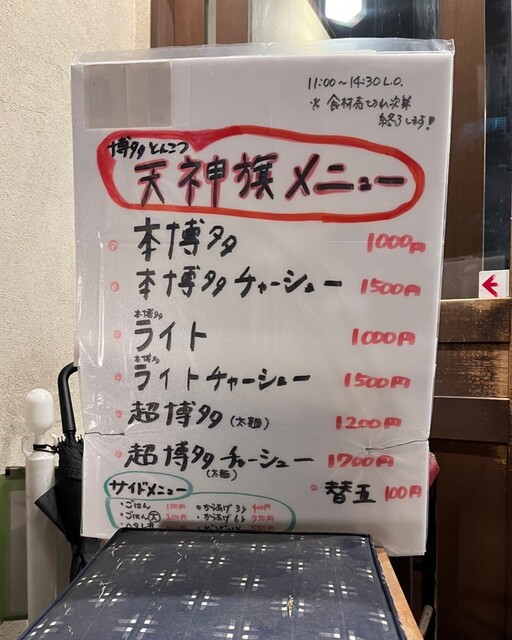 11:00〜14:30 L.O.
※ 食材売切れ次第
終了します!
博多とんこつ
天神旗メニュー
本博多 1000円
本博多チャーシュー 1500円
本博多
ライト 1000円
本博多
ライトチャーシュー 1500円
超博多(太麺) 1200円
超博多チャーシュー 1700円
(太麺)
サイドメニュー
替玉 100円
・ごはん 100円
・からあげ3ヶ 400円
・ごはん(大) 200円
・からあげ6ヶ